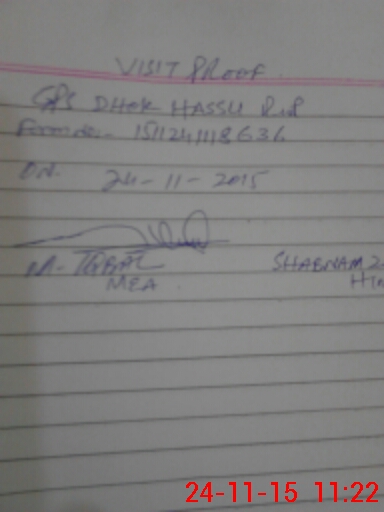 VISIT PROOF
GPS DHOK HASSU R.P
Form no:- 1511241118636
ON. 24-11-2015
M. IQBAL
MEA
SHABNAM
24-11-15 11:22